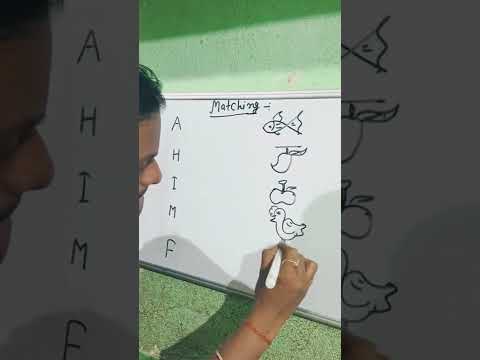 Matching :-
A
H
I
M
F
A
H
I
M
F